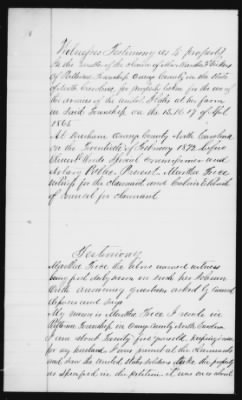 Witnesses Testimony as to property
In the matter of the claim of Mrs Martha
of Township Orange County in the State
of North Carolina, for property taken for the use of
the armies of the United States at her farm
in said Township on the 15.16.17 of April
1865
At Durham Orange County North Carolina
on the Twentieth of February 1872 before
Special Commissioner and
Notary Public, Present, Martha Tice
witness for the claimant and
of Council for claimant
Testimony
Martha Tice the above named witness
sworn
answering questions asked by Council
deposes and says
My name is Martha Tice I reside in
Township in Orange County North Carolina
I am about Twenty five years old, keeping house
for my husband. I was present at the claimants
and saw the United States soldiers take the property
as specified in the petition it was on about